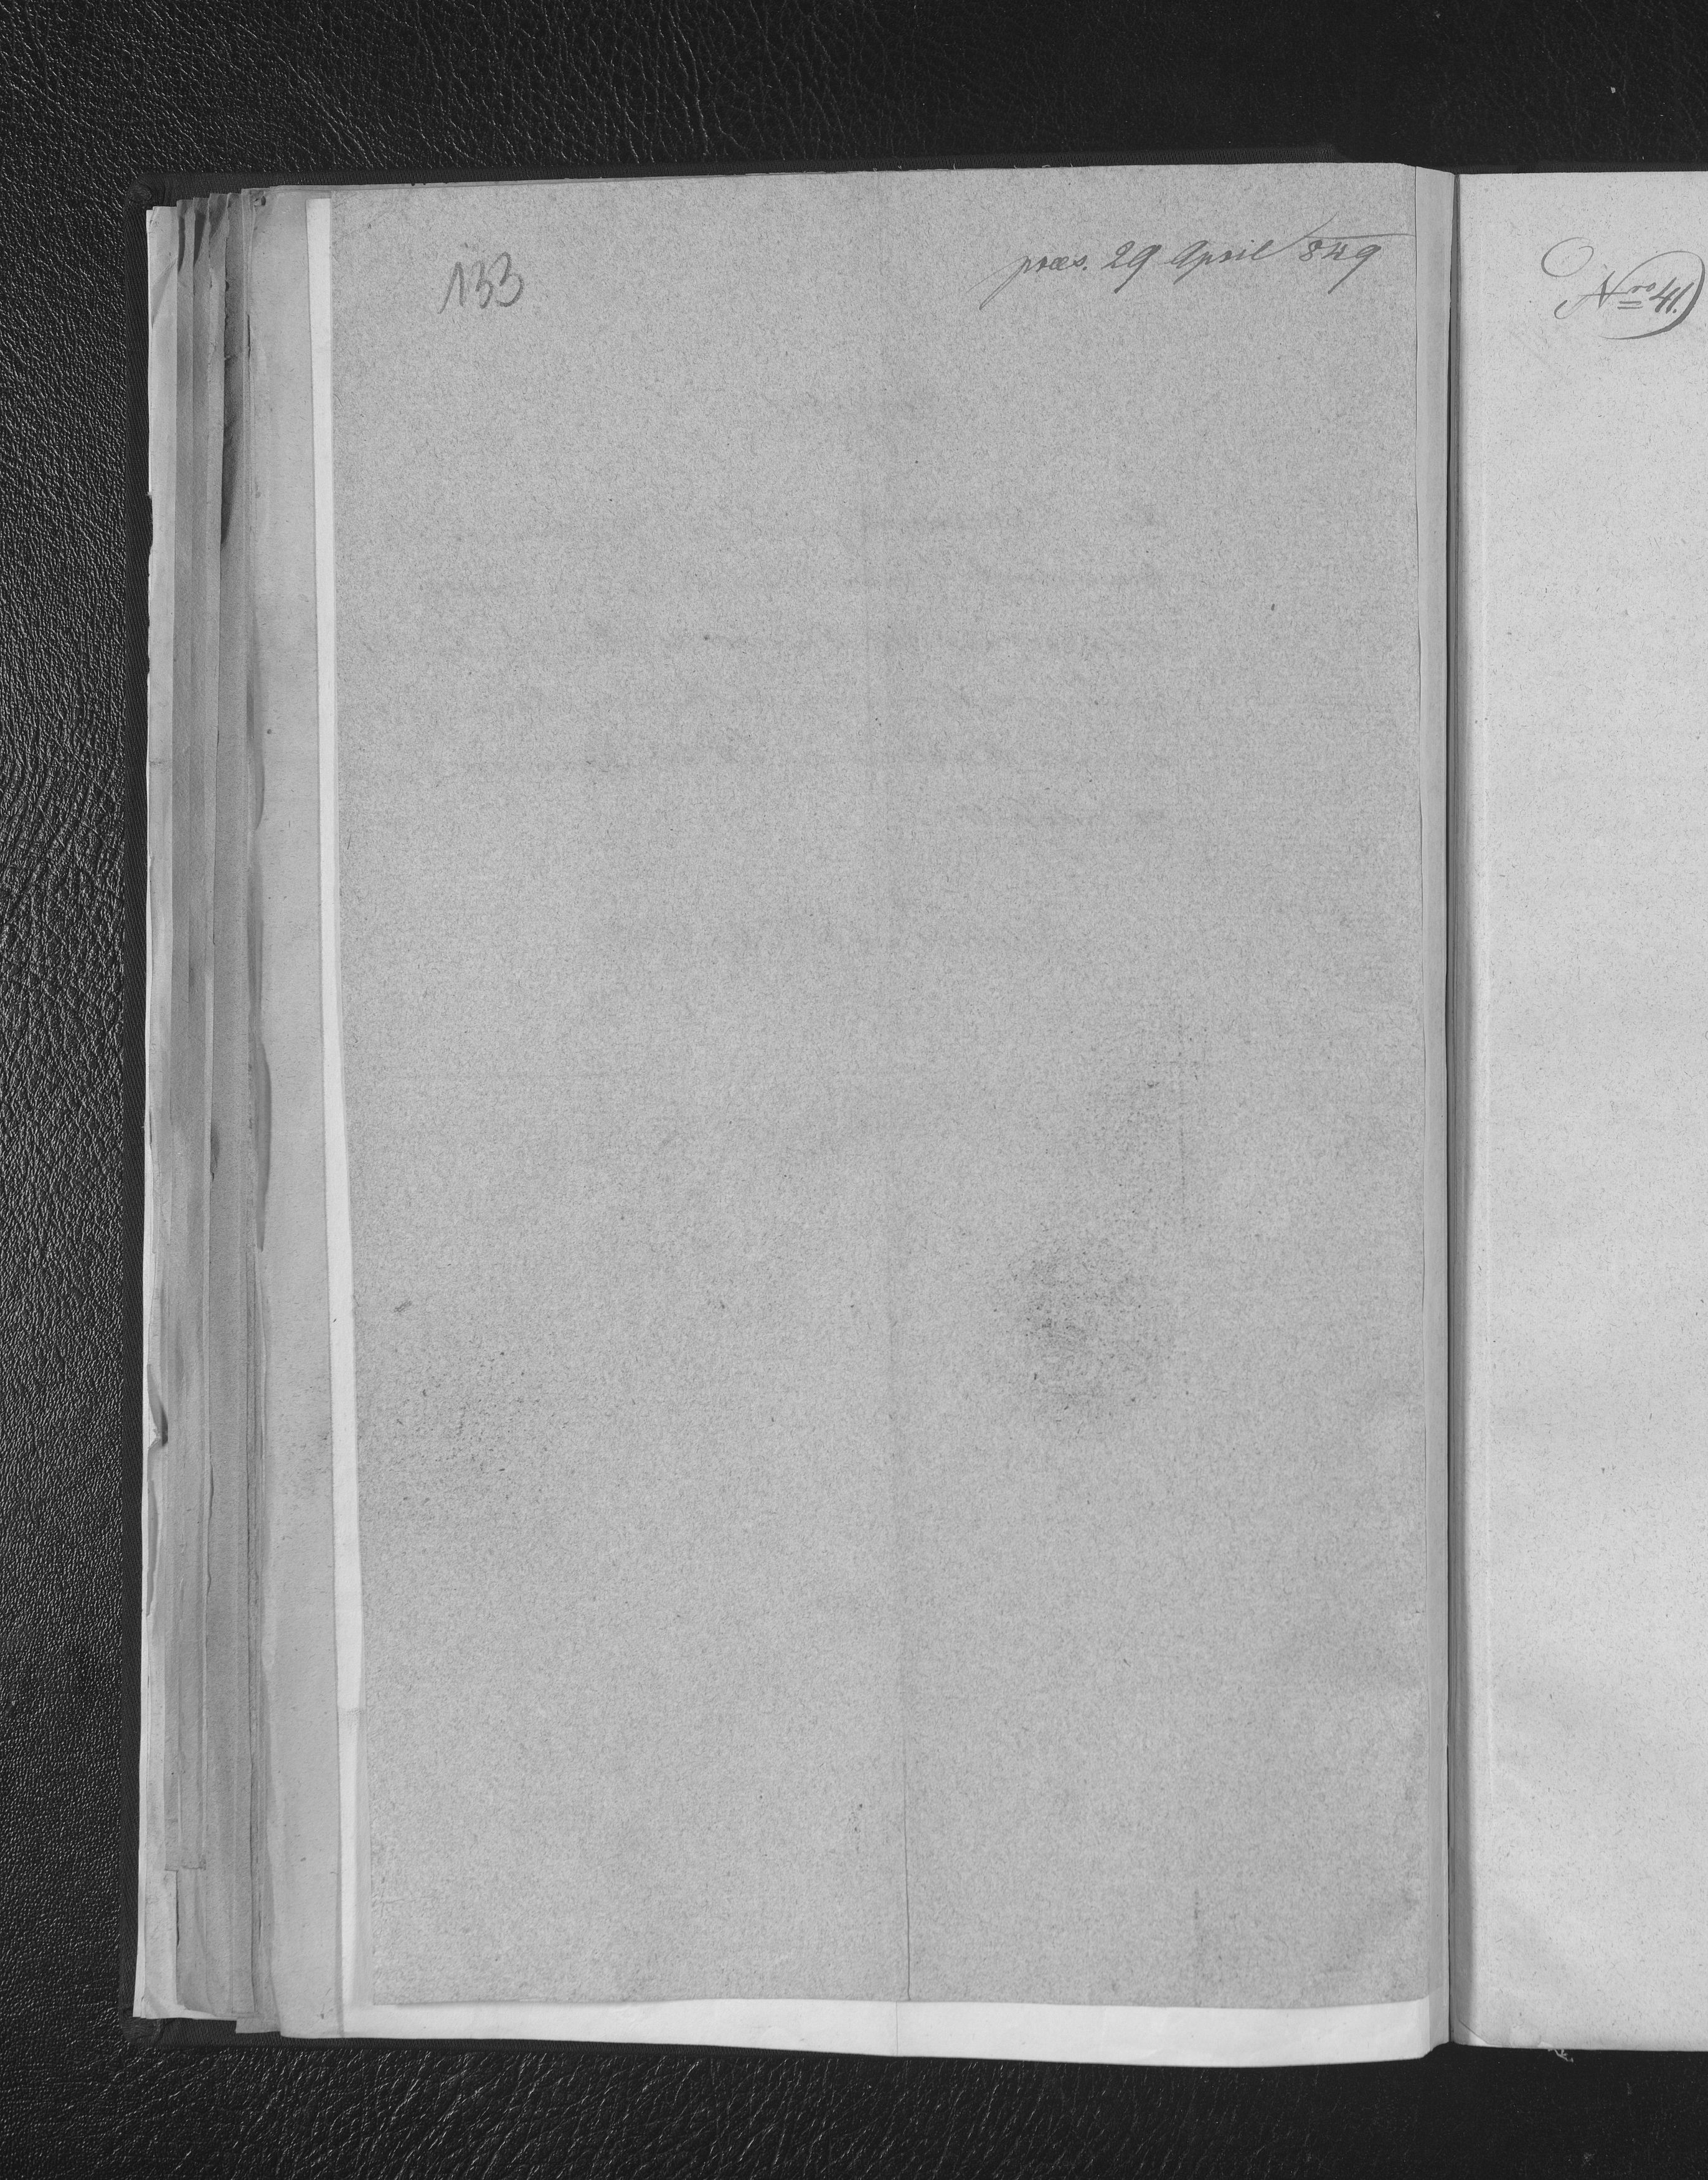 133
præs. 29 April 849
Nro 41.